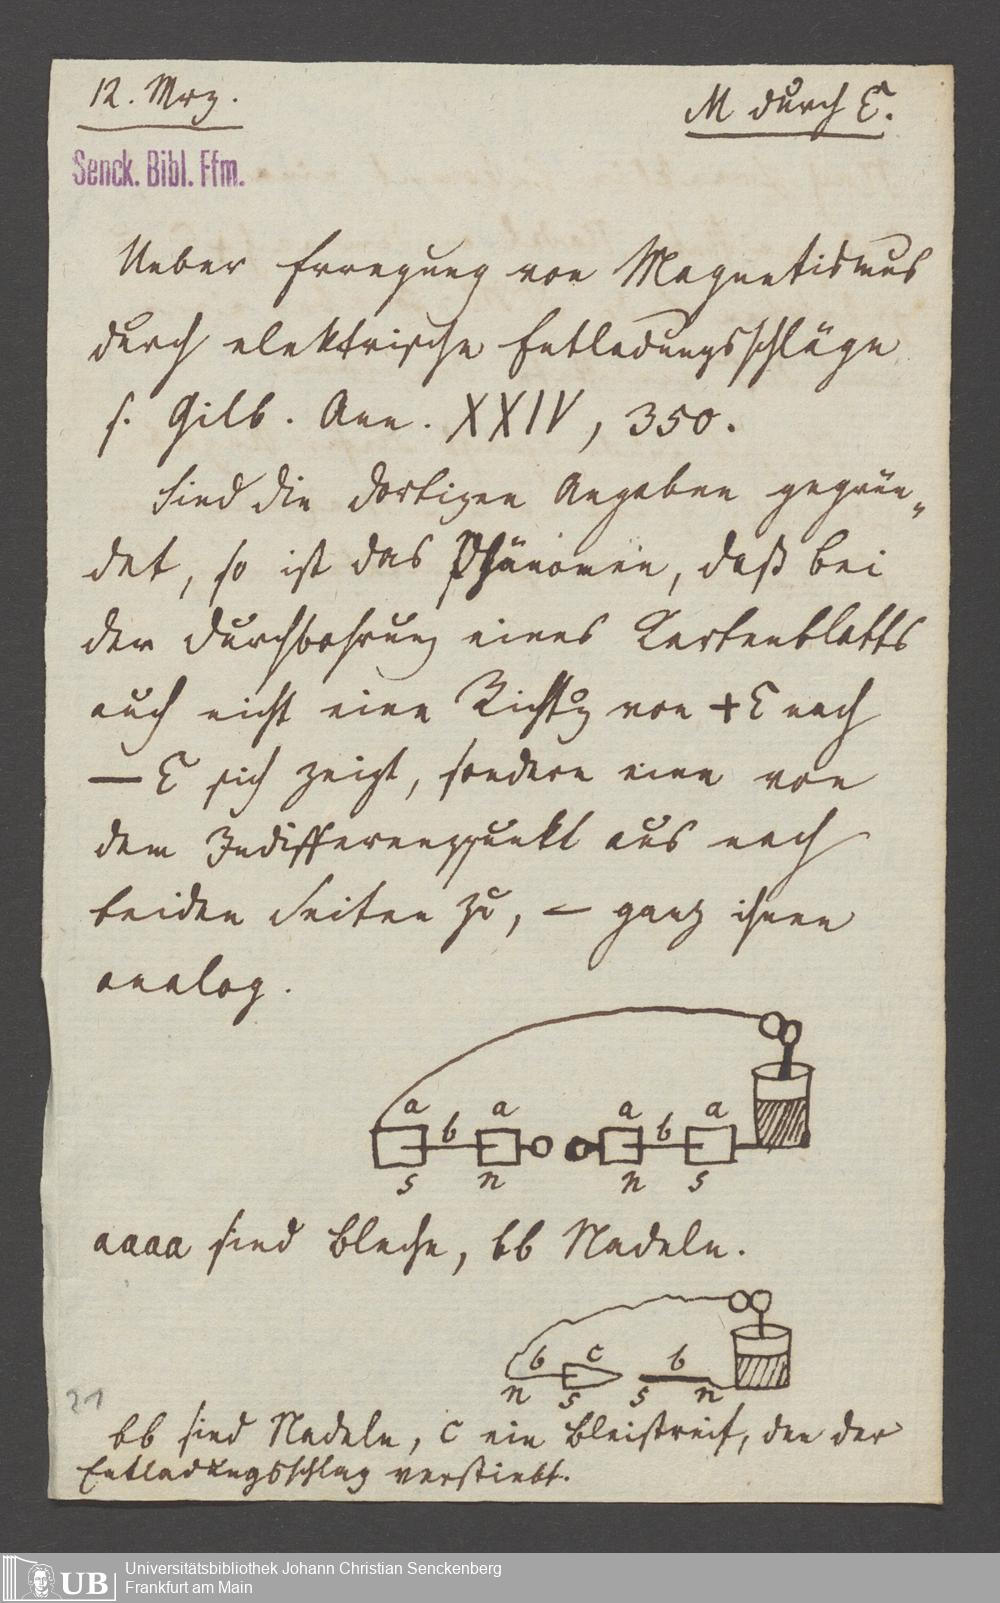 12. Mrz.
M durch E.
Senck. Bibl. Ffm.
Ueber Erregung von Magnetismus
durch elektrische Entladungsschläge
s. Gilb. Ann. XXIV, 350.
Sind die dortigen Angaben gegrün„
det, so ist das Phänomen, daß bei
der Durchbohrung eines Kartenblatts
auch nicht eine Richtg von +E nach
— E sich zeigt, sondern eine von
dem Indifferenzpunkt aus nach
beiden Seiten zu, — ganz ihnen
analog.
a a a a
b b
s n n s
aaaa sind Bleche, bb Nadeln.
b c b
n s s n
21
bb sind Nadeln, c ein Bleistreif, den der
Entladungsschlag verstiebt.
UB
Universitätsbibliothek Johann Christian Senckenberg
Frankfurt am Main